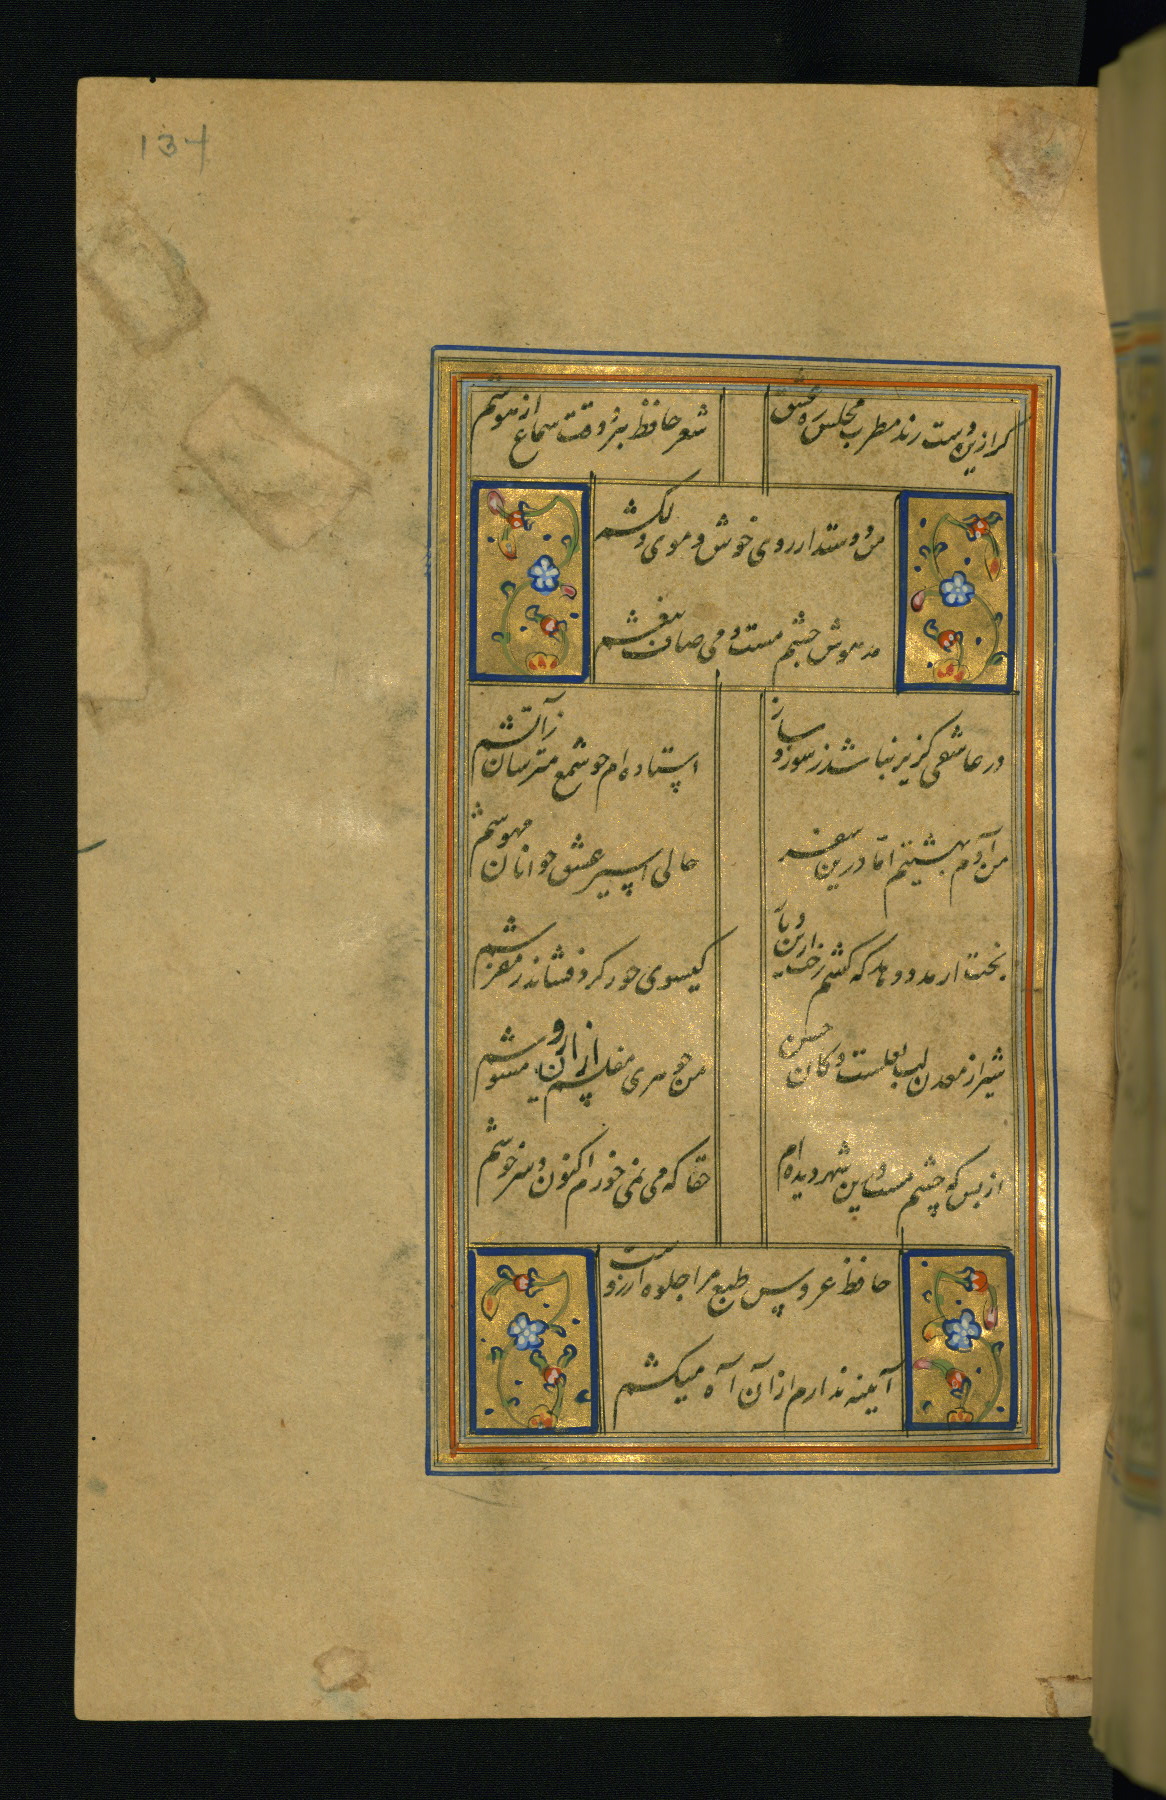 134
گر ازین دست زند مطرب مجلس ره عشق
شعر حافظ ببرد وقت سماع از هوشم
من دوستدار روی خوش و موی دلکشم
مدهوش چشم مست و می صاف بیغشم
در عاشقی گزیر نباشد ز سوز و ساز
استاده ام چو شمع مترسان ز آتشم
من آدم بهشتیم اما درین سفر
حالی اسیر عشق جوانان مهوشم
بخت ار مدد دهد که کشم رخت ازین دیار
گیسوی حور گرد فشاند ز مفرشم
شیراز معدن لب لعلست و کان حسن
من جوهری مفلسم از آن رو مشوشم
از بس که چشم مست درین شهر دیده ام
حقا که می نمی خورم اکنون و سرخوشم
حافظ عروس طبع مرا جلوه آرزوست
آیینه ندارم از آن آه میکشم